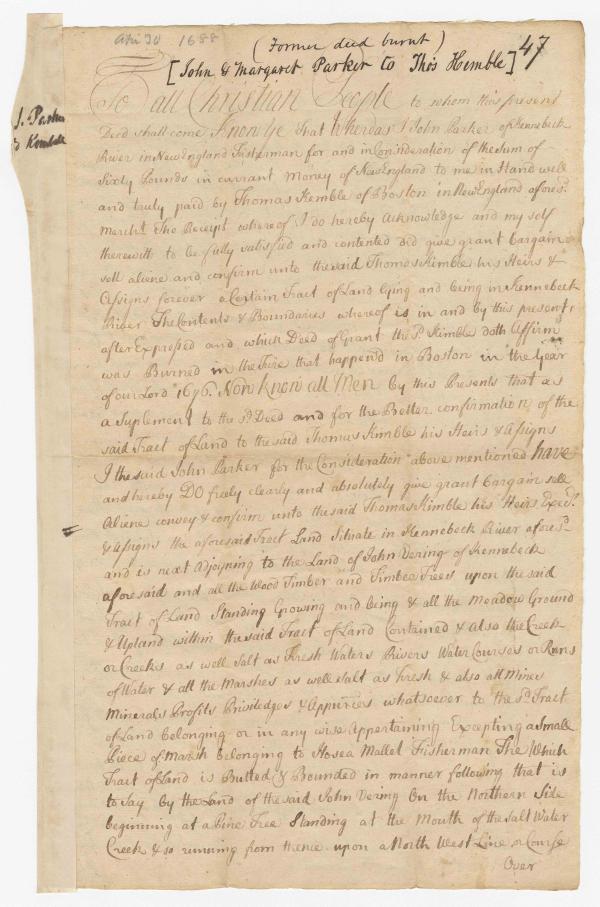 1688
(Former deed burnt)
[John & Margaret Parker to Thos Kemble] 47
J. Parker
Kemble
To all Christian People to whom this present
Deed shall come Know Ye That Whereas I John Parker of Kennebeck
River in New England Fisherman for and in Consideration of the Sum of
Sixty Pounds in currant Money of New England to me in Hand well
and truly paid by Thomas Kemble of Boston in New England aforesd
Mercht. The Receipt whereof I do hereby Acknowledge and my self
therewith to be fully satisfied and contented did give grant bargain
sell aliene and confirm unto the said Thomas Kimble his Heirs &
Assigns forever a Certain Tract of Land lying and being in Kennebeck
River The Contents & Boundaries whereof is in and by this present
after Expressed and which Deed of Grant the sd. Kimble doth Affirm
was Burned in the Fire that happen'd in Boston in the Year
of our Lord 1676. Now Know all Men by this Presents that as
a Suplement to the sd. Deed and for the Better confirmation of the
said Tract of Land to the said Thomas Kimble his Heirs & Assigns
I the said John Parker for the Consideration above mentioned have
and hereby DO freely clearly and absolutely give grant bargain sell
Aliene convey & confirm unto the said Thomas Kimble his Heirs Execrs.
& Assigns the aforesaid Tract Land Situate in Kennebeck River aforesd.
and is next Adjoining to the Land of John Dering of Kennebeck
aforesaid and all the Wood Timber and Timber Trees upon the said
Tract of Land Standing Growing and being & all the Meadow Ground
& Upland within the said Tract of Land Contained & Also the Creek
or Creeks as well Salt as Fresh Waters Rivers Water Courses or Runs
of Water & all the Marshes as well Salt as Fresh & also all Mines
Minerals Profits Priviledges & Appurces whatsoever to the sd. Tract
of Land belonging or in any wise Appertaining Excepting a Small
Piece of Marsh belonging to Hosea Mallet Fisherman The Which
Tract of Land is Butted & Bounded in manner following that is
to Say by the Land of the said John Dering On the Northern Side
beginning at a Pine Tree Standing at the Mouth of the Salt Water
Creek & so running from thence upon a North West Line or Course
Over